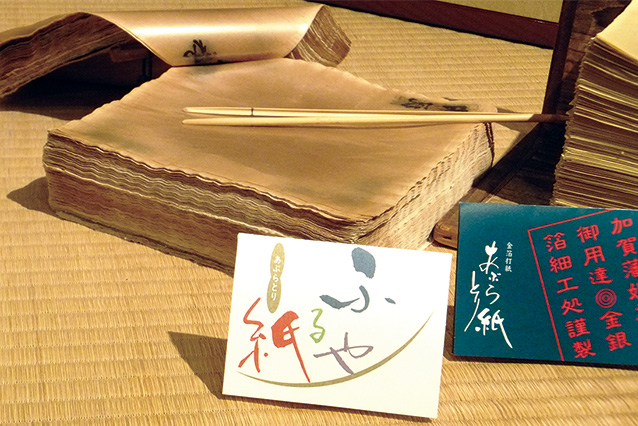 あぶらとり
ふるや紙
金箔打紙
あぶらとり紙
加賀藩
御用達 金銀
箔細工処謹製